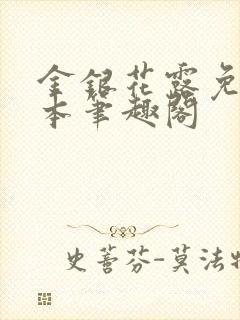 金银花露免
本笔趣阁
史菩芬-莫法特